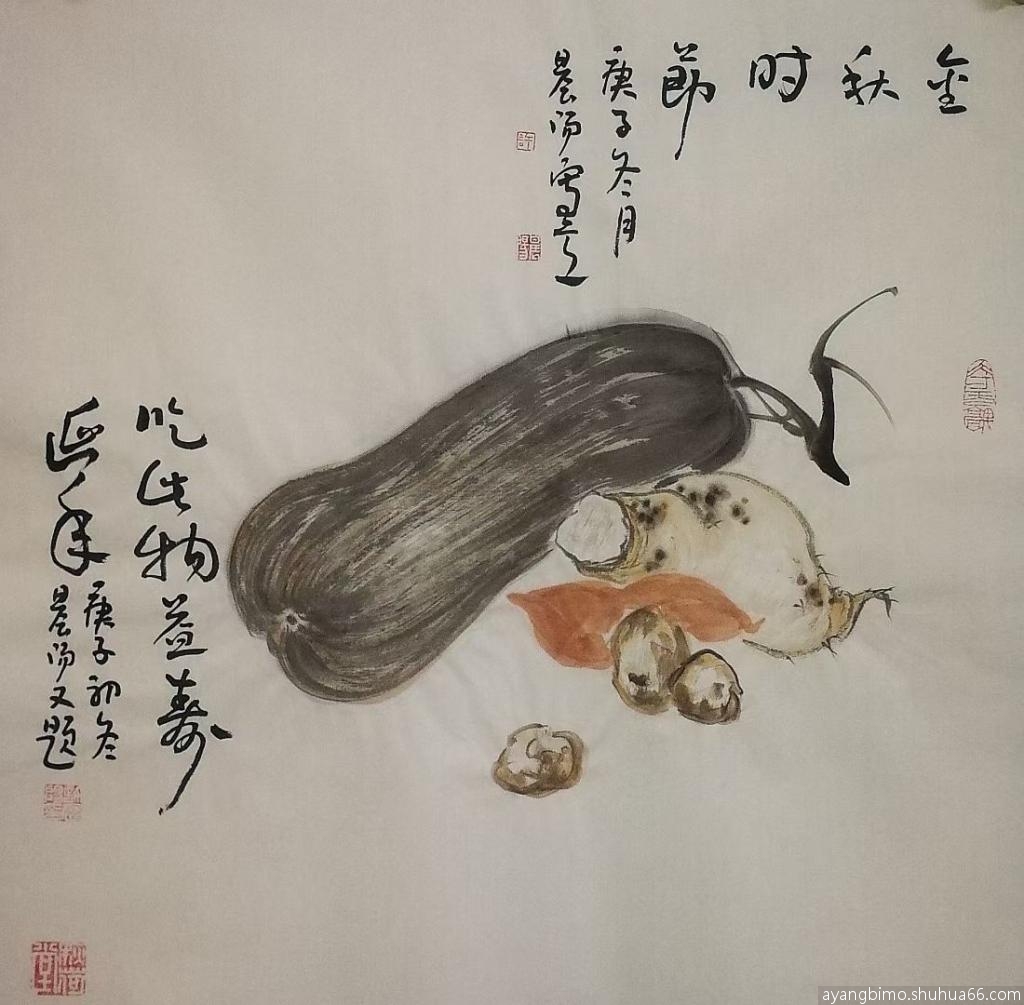 金秋时節
庚子冬月
晨阳写意
吃此物益寿
延年
庚子初冬
晨阳又题
ayangbimo.shuhua66.com